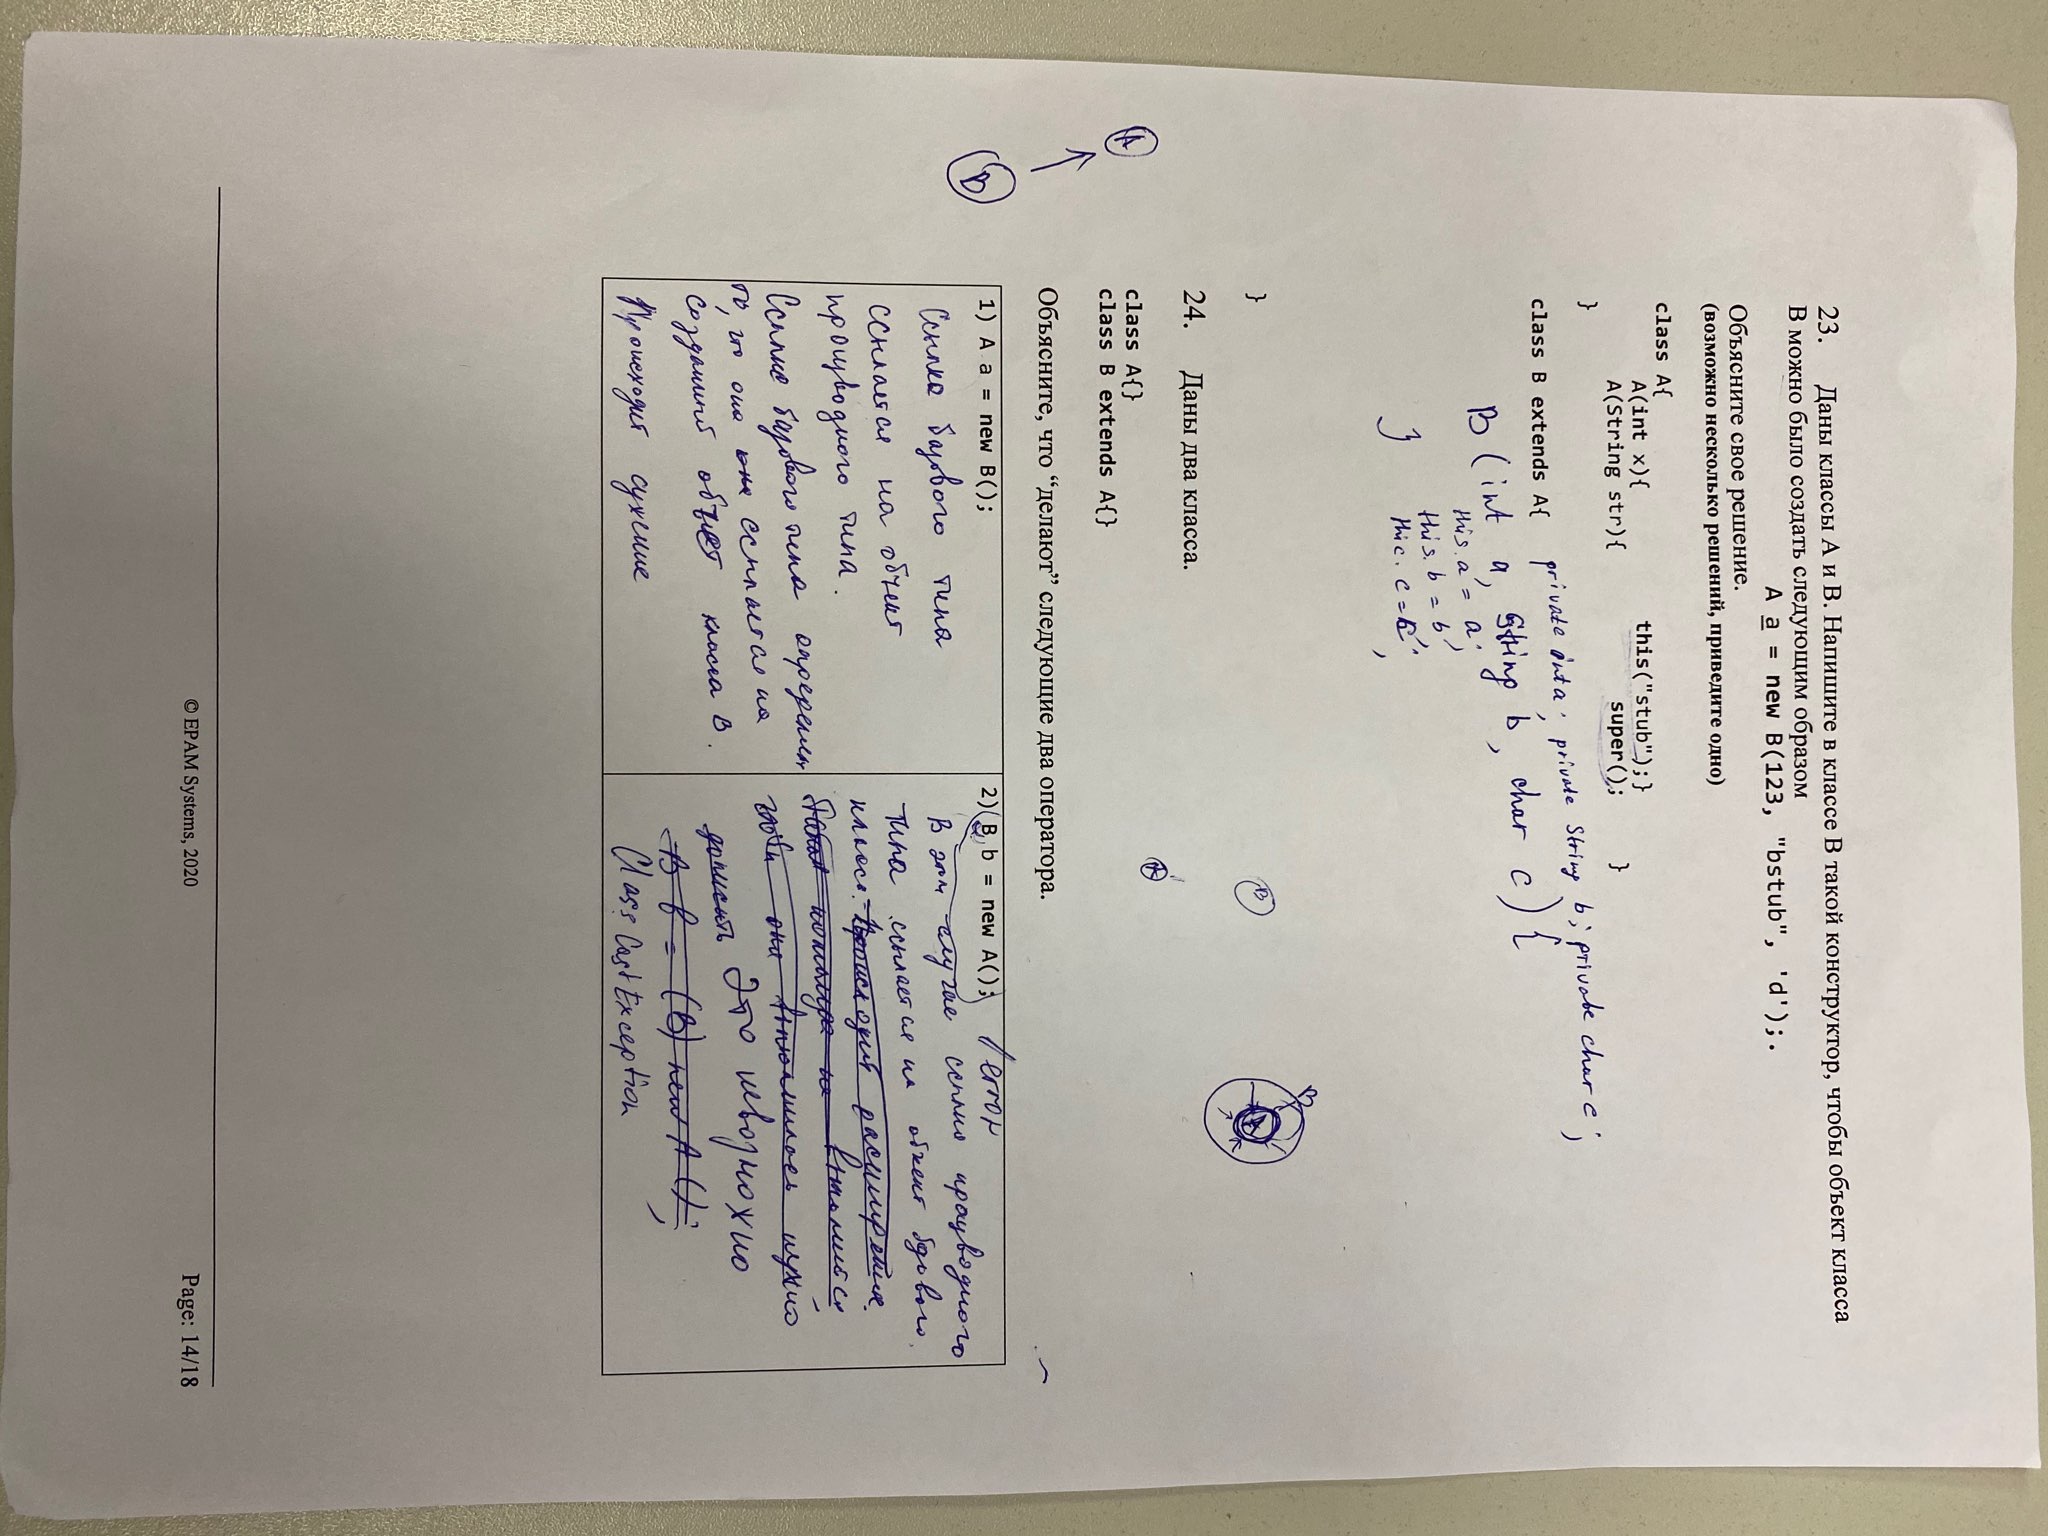 23. Даны классы A и B. Напишите в классе B такой конструктор, чтобы объект класса
B можно было создать следующим образом
A a = new B(123, "bstub", 'd');.
Объясните свое решение.
(возможно несколько решений, приведите одно)
class A{
A(int x){ this("stub");}
A(String str){ super(); }
}
class B extends A{ private int a; private String b; private char c;
B (int a, String b, char c) {
this.a = a;
this.b = b;
this.c = c;
}
}
B
A
B
A
24. Даны два класса.
class A{}
class B extends A{}
A
B
Объясните, что “делают” следующие два оператора.
1) A a = new B();
Ссылка базового типа
ссылается на объект
производного типа.
Ссылка базового типа
то, что она она ссылается на
созданный объект класса B.
Происходит сужение
2) B b = new A(); error
В этом случае ссылка производного
типа ссылается на объект базового
класса. Происходит расширение.
чтобы она выполнилась нужно
дописать Это невозможно
B b = (B) new A();
ClassCastException
© EPAM Systems, 2020
Page: 14/18